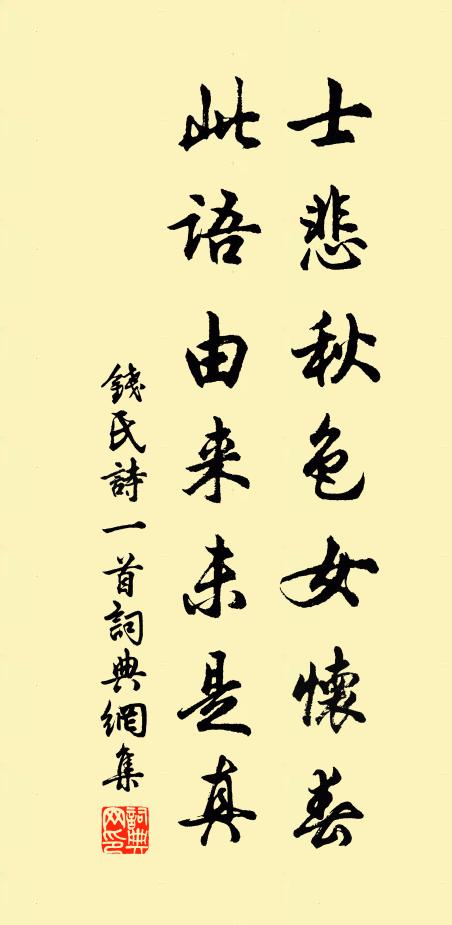 士悲秋色女懷春
此语由来未是真
錢氏詩一首詞典網集
詞典网印